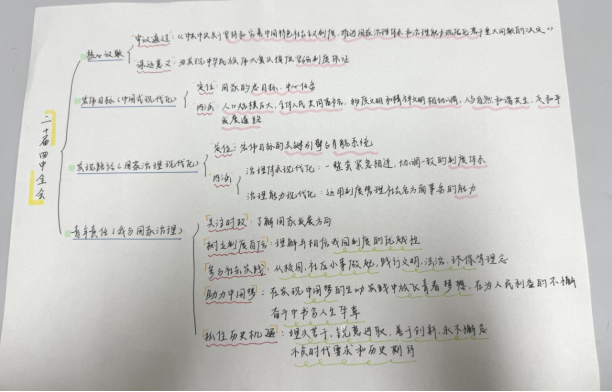 二十届四中全会
核心议题
审议通过:《中共中央关于坚持和完善中国特色社会主义制度、推进国家治理体系和治理能力现代化若干重大问题的决定》
深远意义:为实现中华民族伟大复兴提供坚强制度保证
总体目标(中国式现代化)
定位:国家的总目标、中心任务
内涵:人口规模巨大、全体人民共同富裕、物质文明和精神文明相协调、人与自然和谐共生、走和平
发展道路
实现路径(国家治理现代化)
定位:总体目标的关键引擎与
系统
内涵
治理体系现代化:一整套紧密相连、协调一致的制度体系
治理能力现代化:运用制度管理社会各方面事务的能力
青年责任(我与国家治理)
关注时政:了解国家发展方向
树立制度自信:理解并相信我国制度的优越性
参与社会实践:从校园、社区小事做起,践行文明、法治、环保等理念
助力中国梦:在实现中国梦的生动实践中放飞青春梦想,在为人民利益的不懈
奋斗中书写人生华章
抓住历史机遇:埋头苦干、锐意进取、善于创新、永不懈怠
不负时代重求和历史期待